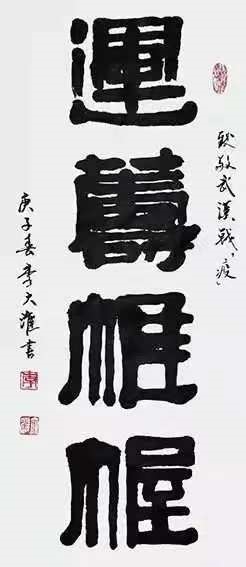 致敬武漢戰“疫”
運籌帷幄
庚子春李書